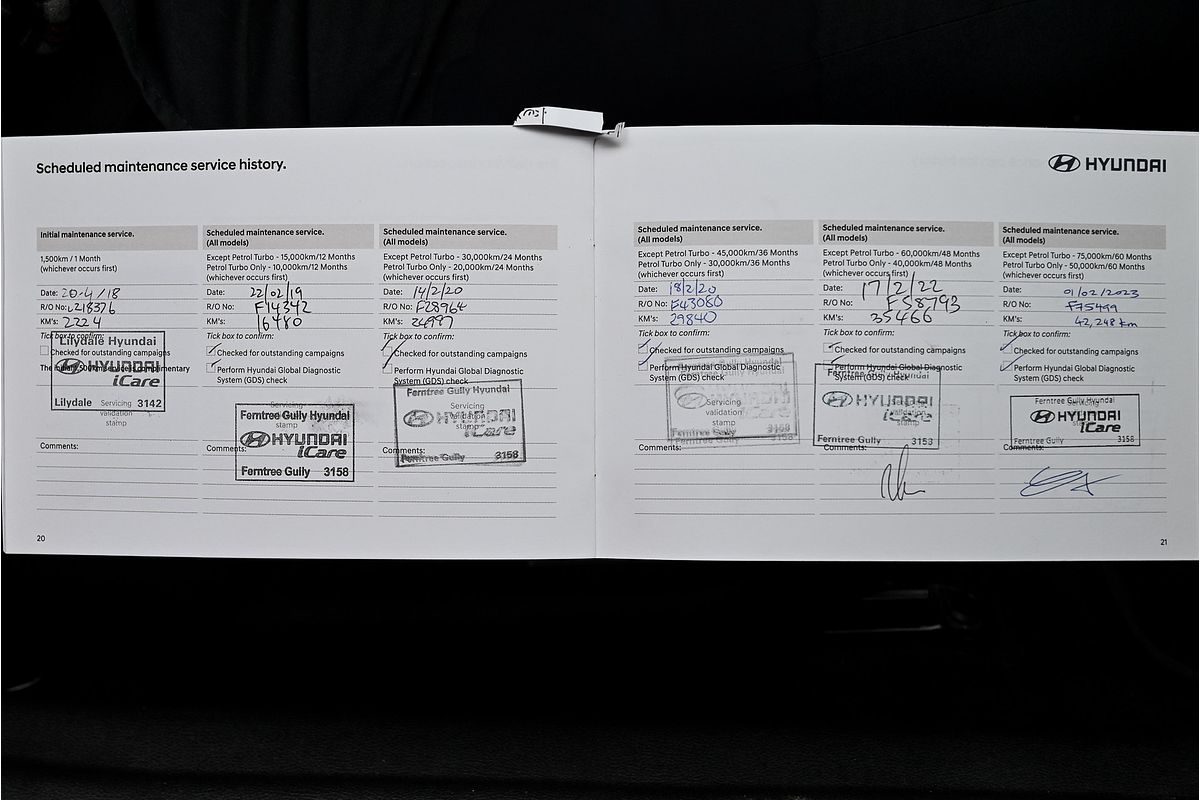 Scheduled maintenance service history.
HYUNDAI
Initial maintenance service.
1,500km / 1 Month
(whichever occurs first)
Date: 20-4/18
R/O No: L218376
KM's: 2224
Tick box to confirm:
Checked for outstanding campaigns
Lilydale Hyundai
HYUNDAI
iCare
Lilydale 3142
Servicing
validation
stamp
Comments:
Scheduled maintenance service.
(All models)
Except Petrol Turbo - 15,000km/12 Months
Petrol Turbo Only - 10,000km/12 Months
(whichever occurs first)
Date: 22/02/19
R/O No: F14342
KM's: 16480
Tick box to confirm:
Checked for outstanding campaigns
Perform Hyundai Global Diagnostic
System (GDS) check
Ferntree Gully Hyundai
stamp
HYUNDAI
iCare
Ferntree Gully 3158
Comments:
Scheduled maintenance service.
(All models)
Except Petrol Turbo - 30,000km/24 Months
Petrol Turbo Only - 20,000km/24 Months
(whichever occurs first)
Date: 14/2/20
R/O No: F28964
KM's: 24997
Tick box to confirm:
Checked for outstanding campaigns
Perform Hyundai Global Diagnostic
System (GDS) check
Ferntree Gully Hyundai
Servicing
validation
stamp
HYUNDAI
iCare
Ferntree Gully 3158
Comments:
20
Scheduled maintenance service.
(All models)
Except Petrol Turbo - 45,000km/36 Months
Petrol Turbo Only - 30,000km/36 Months
(whichever occurs first)
Date: 18/2/20
R/O No: F43080
KM's: 29840
Tick box to confirm:
Checked for outstanding campaigns
Perform Hyundai Global Diagnostic
System (GDS) check
Servicing
validation
stamp
Comments:
Scheduled maintenance service.
(All models)
Except Petrol Turbo - 60,000km/48 Months
Petrol Turbo Only - 40,000km/48 Months
(whichever occurs first)
Date: 17/2/22
R/O No: F58793
KM's: 35466
Tick box to confirm:
Checked for outstanding campaigns
Perform Hyundai Global Diagnostic
System (GDS) check
HYUNDAI
iCare
validation
stamp
Ferntree Gully 3153
Comments:
Scheduled maintenance service.
(All models)
Except Petrol Turbo - 75,000km/60 Months
Petrol Turbo Only - 50,000km/60 Months
(whichever occurs first)
Date: 01/02/2023
R/O No: F75499
KM's: 42,248 km
Tick box to confirm:
Checked for outstanding campaigns
Perform Hyundai Global Diagnostic
System (GDS) check
Ferntree Gully Hyundai
HYUNDAI
iCare
Ferntree Gully 3158
Comments:
21